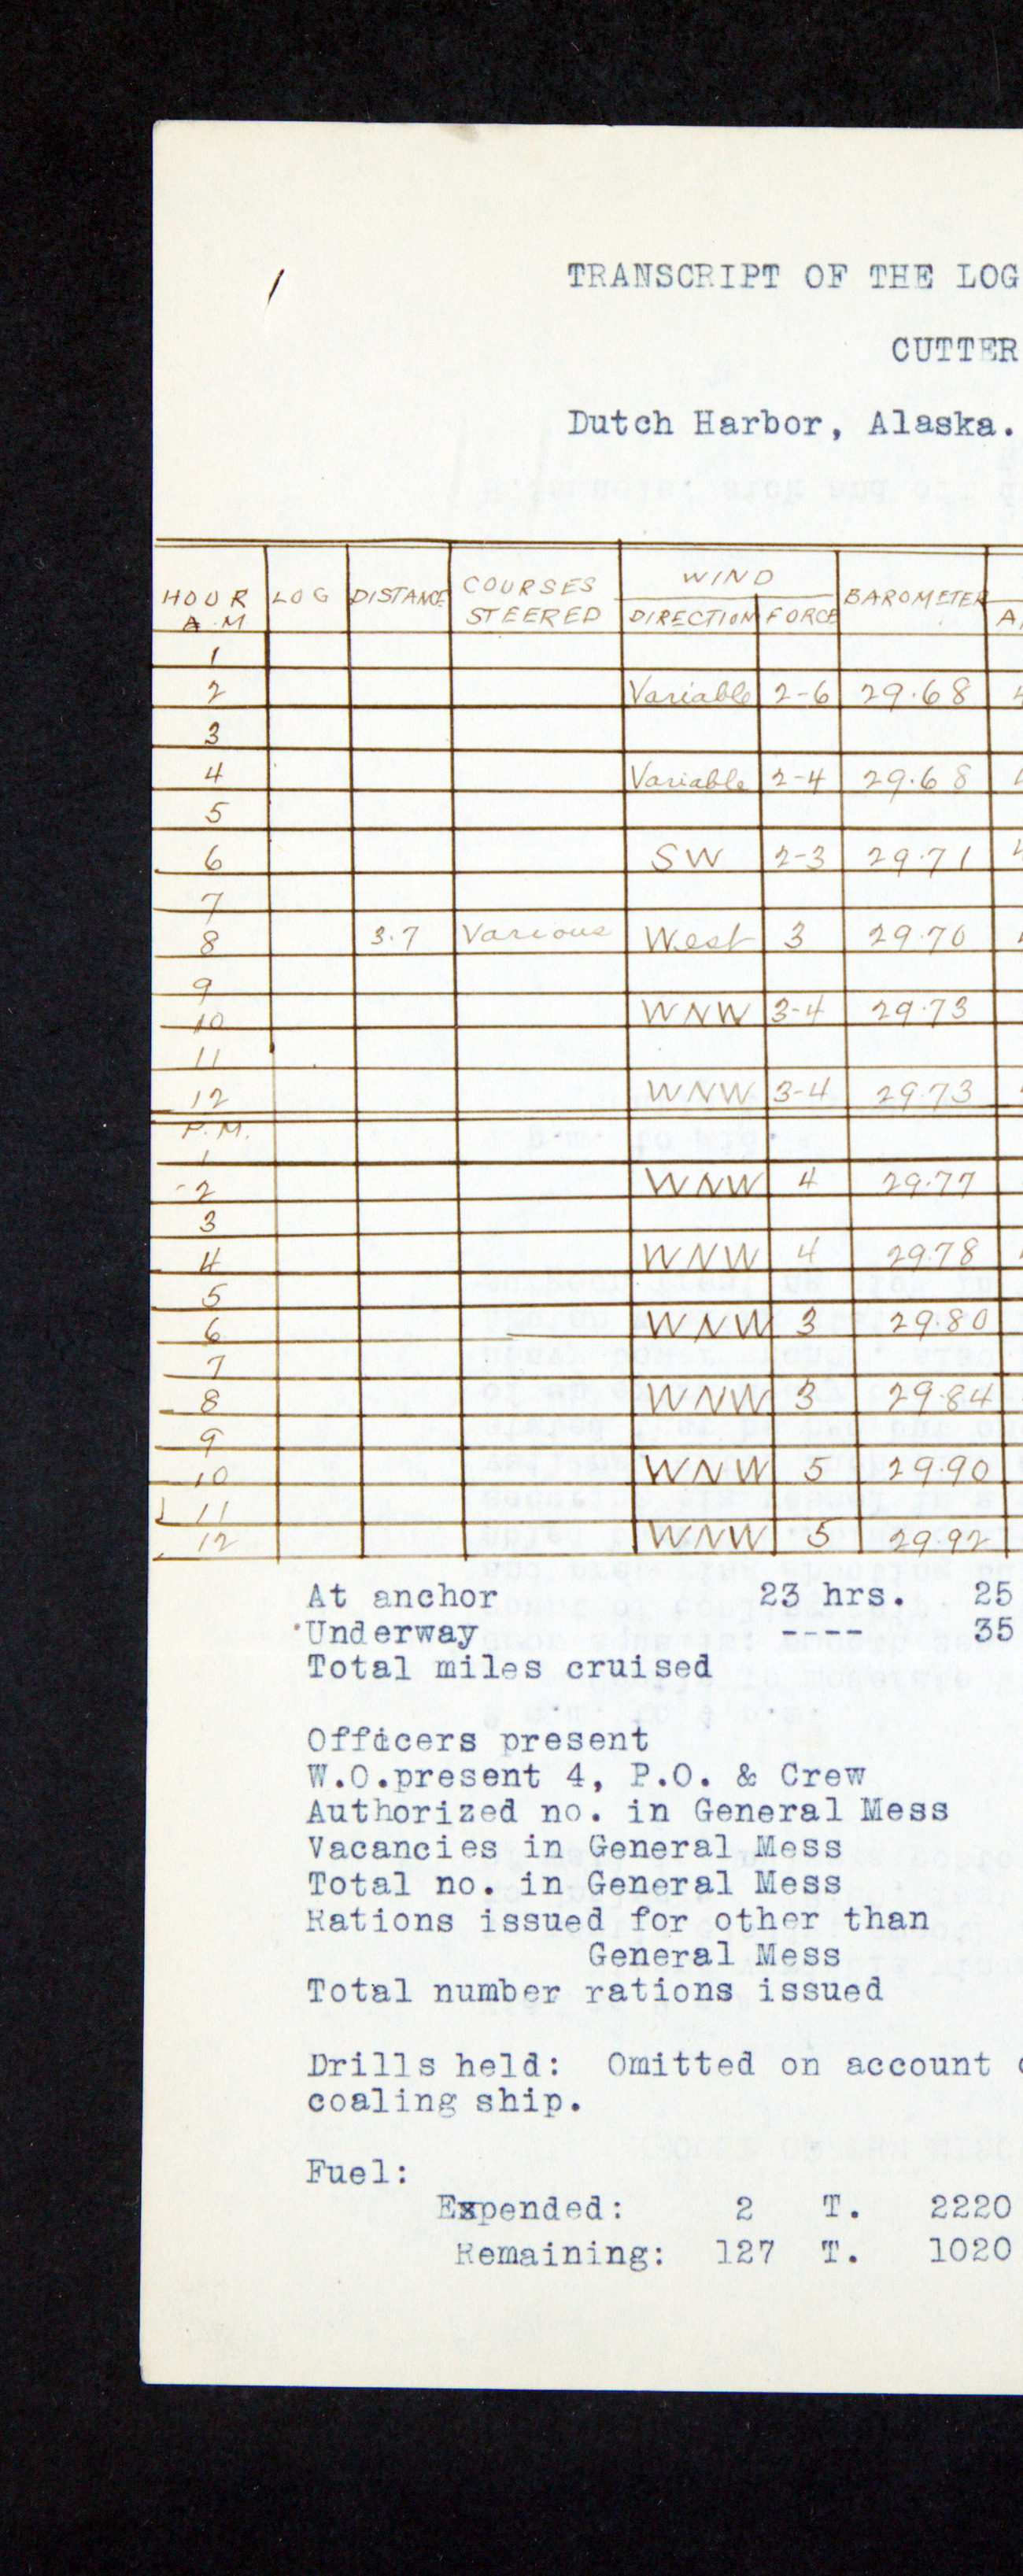 /
TRANSCRIPT OF THE LOG
CUTTER
Dutch Harbor, Alaska.
HOUR LOG DISTANCE COURSES STEERED WIND BAROMETER
A.M DIRECTION FORCE
1
2 Variable 2-6 29.68
3
4 Variable 2-4 29.68
5
6 SW 2-3 29.71
7
8 3.7 Various West 3 29.70
9
10 WNW 3-4 29.73
11
12 WNW 3-4 29.73
P.M.
1
2 WNW 4 29.77
3
4 WNW 4 29.78
5
6 WNW 3 29.80
7
8 WNW 3 29.84
9
10 WNW 5 29.90
11
12 WNW 5 29.92
At anchor 23 hrs. 25
Underway ---- 35
Total miles cruised
Officers present
W.O.present 4, P.O. & Crew
Authorized no. in General Mess
Vacancies in General Mess
Total no. in General Mess
Rations issued for other than
General Mess
Total number rations issued
Drills held: Omitted on account
coaling ship.
Fuel:
Expended: 2 T. 2220
Remaining: 127 T. 1020